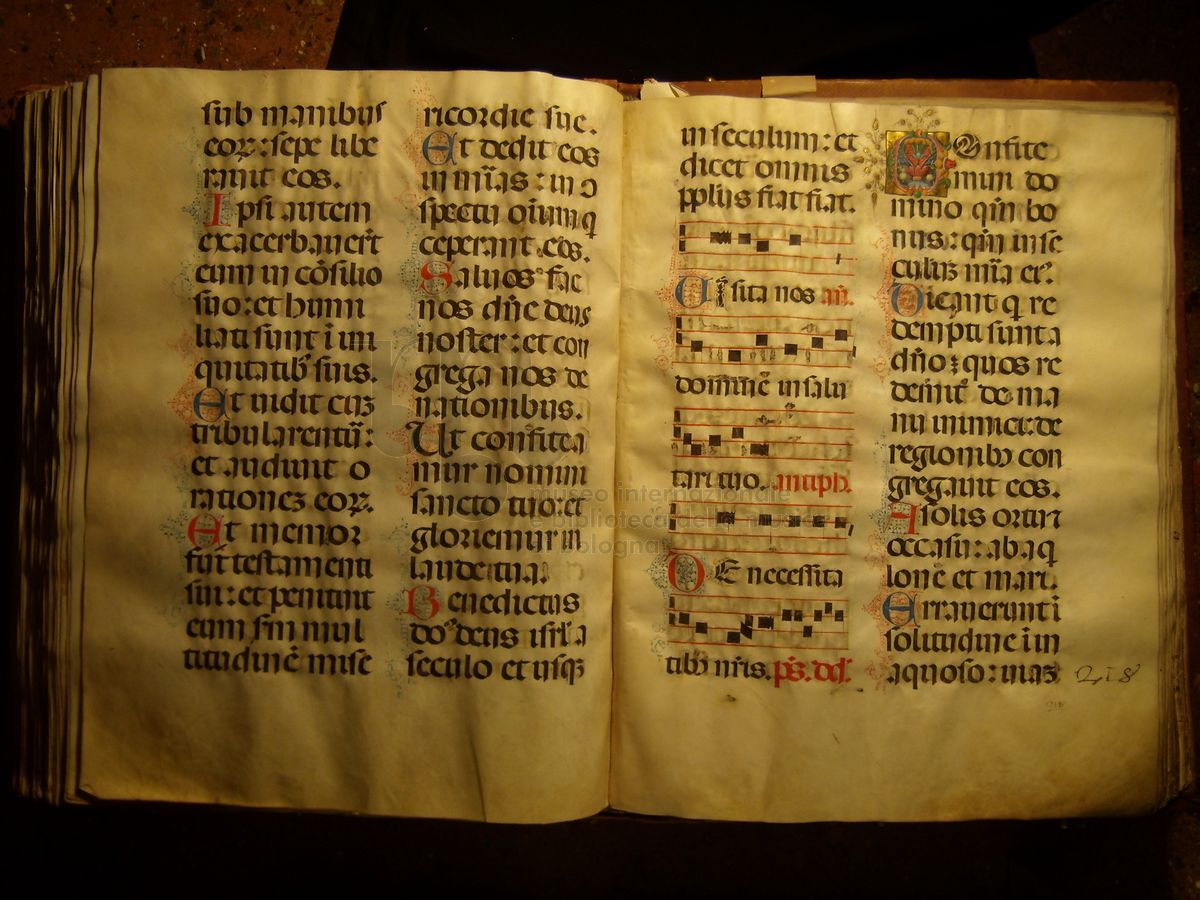 sub manibus
eoꝝ: sepe libe
rauit eos.
Ipsi autem
exacerbauerūt
eum in cōsilio
suo: et humi
liati sunt ī ini
quitatibꝰ suis.
Et uidit cuꝫ
tribularentur̄:
et audiuit o
rationeꝫ eoꝝ.
Et memor
fuit testamenti
sui: et penituit
eum sm̄ mul
titudinē mise
ricordie sue.
Et dedit eos
in mīas: in ↄ
spectu oīum q̄
ceperant eos.
Saluos fac
nos dn̄e deus
noster: et con
grega nos de
nationibus.
Ut confitea
mur nomini
sancto tuo: et
gloriemur in
laude tua.
Benedictus
do deus isrl̄ a
seculo et usqꝫ
in seculum: et
dicet omnis
ppl̄us fiat fiat.
Uisita nos an̄.
dominē in salu
tari tuo. antiph̄.
DE necessita
tibꝰ nr̄is. ps̄. dd̄.
COnfite
mini do
mino qm̄ bo
nus: qm̄ in se
culuꝫ mīa eiꝰ.
Dicant q̄ re
dempti sunt a
dn̄o: quos re
demit de ma
nu inimici: de
regionibꝰ con
gregauit eos.
A solis ortu et
occasu: ab aq̄
lone et mari.
Errauerunt ī
solitudine ī in
aquoso: uiaꝫ
218
museo internazionale
e biblioteca della musica
bologna